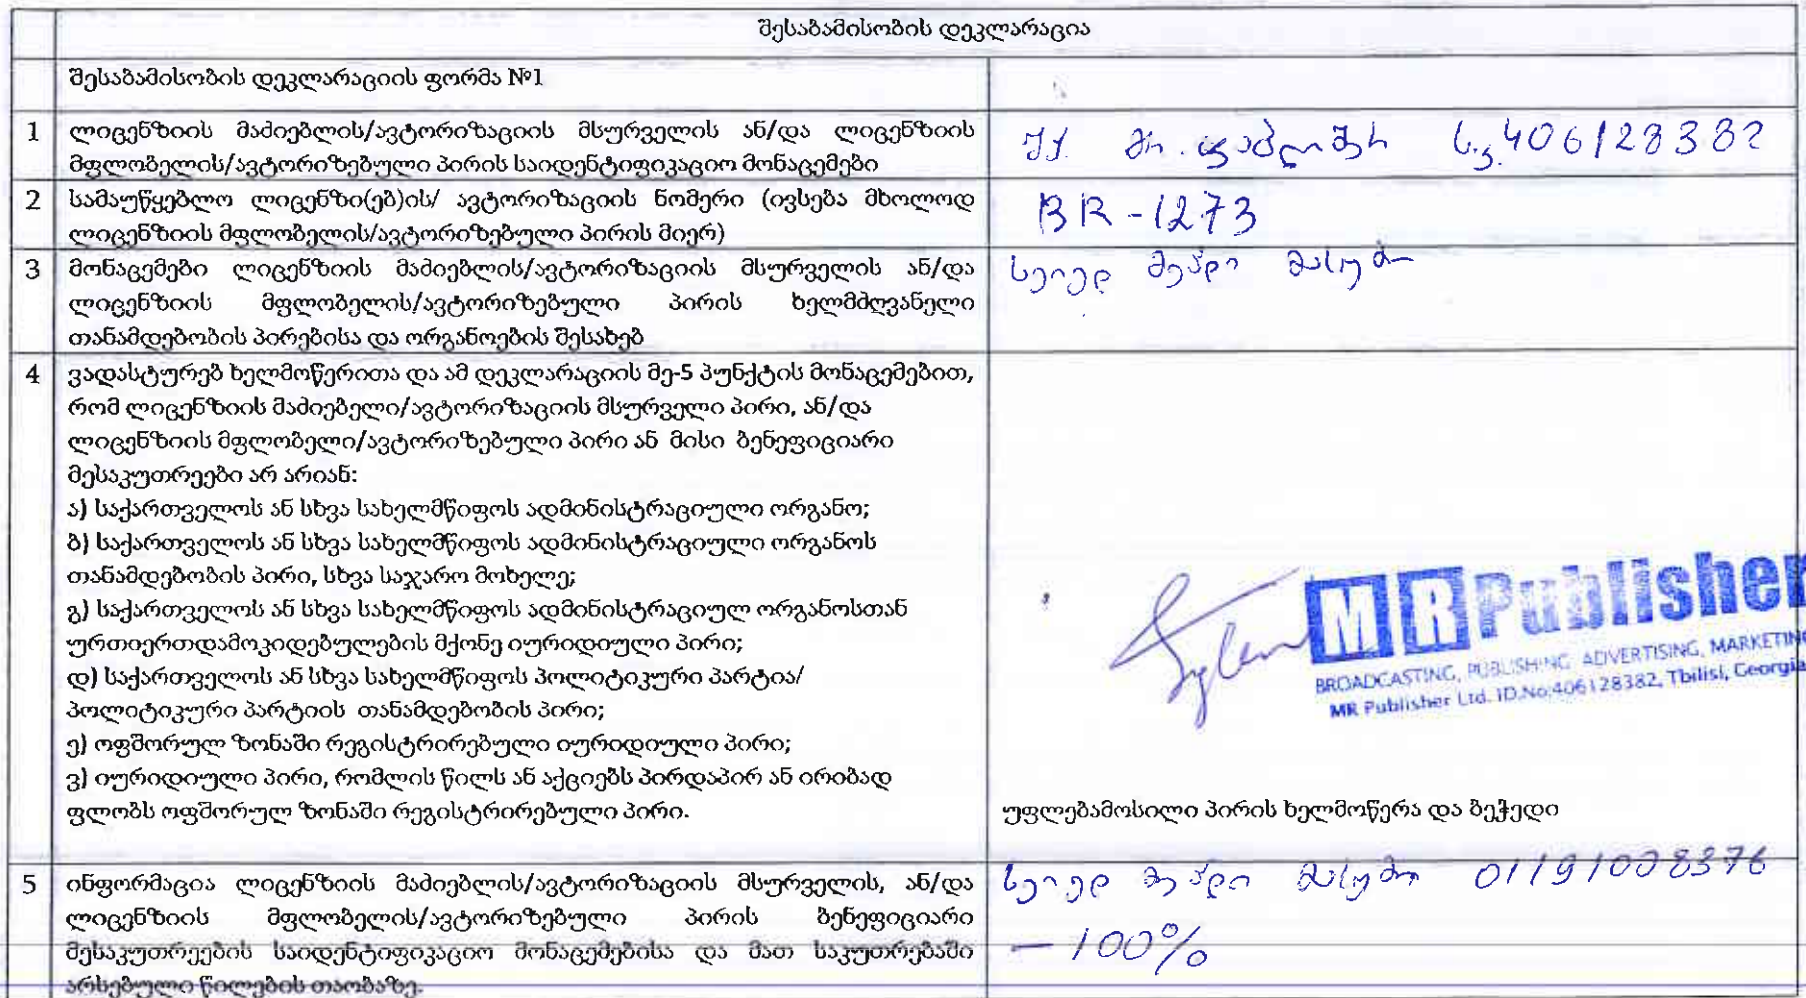 შესაბამისობის დეკლარაცია
შესაბამისობის დეკლარაციის ფორმა №1
1 ლიცენზიის მაძიებლის/ავტორიზაციის მსურველის ან/და ლიცენზიის
მფლობელის/ავტორიზებული პირის საიდენტიფიკაციო მონაცემები
ს.კ. 406128382
2 სამაუწყებლო ლიცენზი(ებ)ის/ ავტორიზაციის ნომერი (ივსება მხოლოდ
ლიცენზიის მფლობელის/ავტორიზებული პირის მიერ)
BR-1273
3 მონაცემები ლიცენზიის მაძიებლის/ავტორიზაციის მსურველის ან/და
ლიცენზიის მფლობელის/ავტორიზებული პირის ხელმძღვანელი
თანამდებობის პირებისა და ორგანოების შესახებ
სეიედ მეჰდი
4 ვადასტურებ ხელმოწერითა და ამ დეკლარაციის მე-5 პუნქტის მონაცემებით,
რომ ლიცენზიის მაძიებელი/ავტორიზაციის მსურველი პირი, ან/და
ლიცენზიის მფლობელი/ავტორიზებული პირი ან მისი ბენეფიციარი
მესაკუთრეები არ არიან:
ა) საქართველოს ან სხვა სახელმწიფოს ადმინისტრაციული ორგანო;
ბ) საქართველოს ან სხვა სახელმწიფოს ადმინისტრაციული ორგანოს
თანამდებობის პირი, სხვა საჯარო მოხელე;
გ) საქართველოს ან სხვა სახელმწიფოს ადმინისტრაციულ ორგანოსთან
ურთიერთდამოკიდებულების მქონე იურიდიული პირი;
დ) საქართველოს ან სხვა სახელმწიფოს პოლიტიკური პარტია/
პოლიტიკური პარტიის თანამდებობის პირი;
ე) ოფშორულ ზონაში რეგისტრირებული იურიდიული პირი;
ვ) იურიდიული პირი, რომლის წილს ან აქციებს პირდაპირ ან ირიბად
ფლობს ოფშორულ ზონაში რეგისტრირებული პირი.
MR Publisher
BROADCASTING, PUBLISHING, ADVERTISING, MARKETING
MR Publisher Ltd. ID.No:406128382, Tbilisi, Georgia
უფლებამოსილი პირის ხელმოწერა და ბეჭედი
5 ინფორმაცია ლიცენზიის მაძიებლის/ავტორიზაციის მსურველის, ან/და
ლიცენზიის მფლობელის/ავტორიზებული პირის ბენეფიციარი
მესაკუთრეების საიდენტიფიკაციო მონაცემებისა და მათ საკუთრებაში
არსებული წილების თაობაზე.
სეიედ მეჰდი 01191008376
- 100%